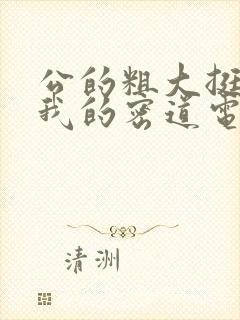 公的粗大挺
我的密道电
清洲